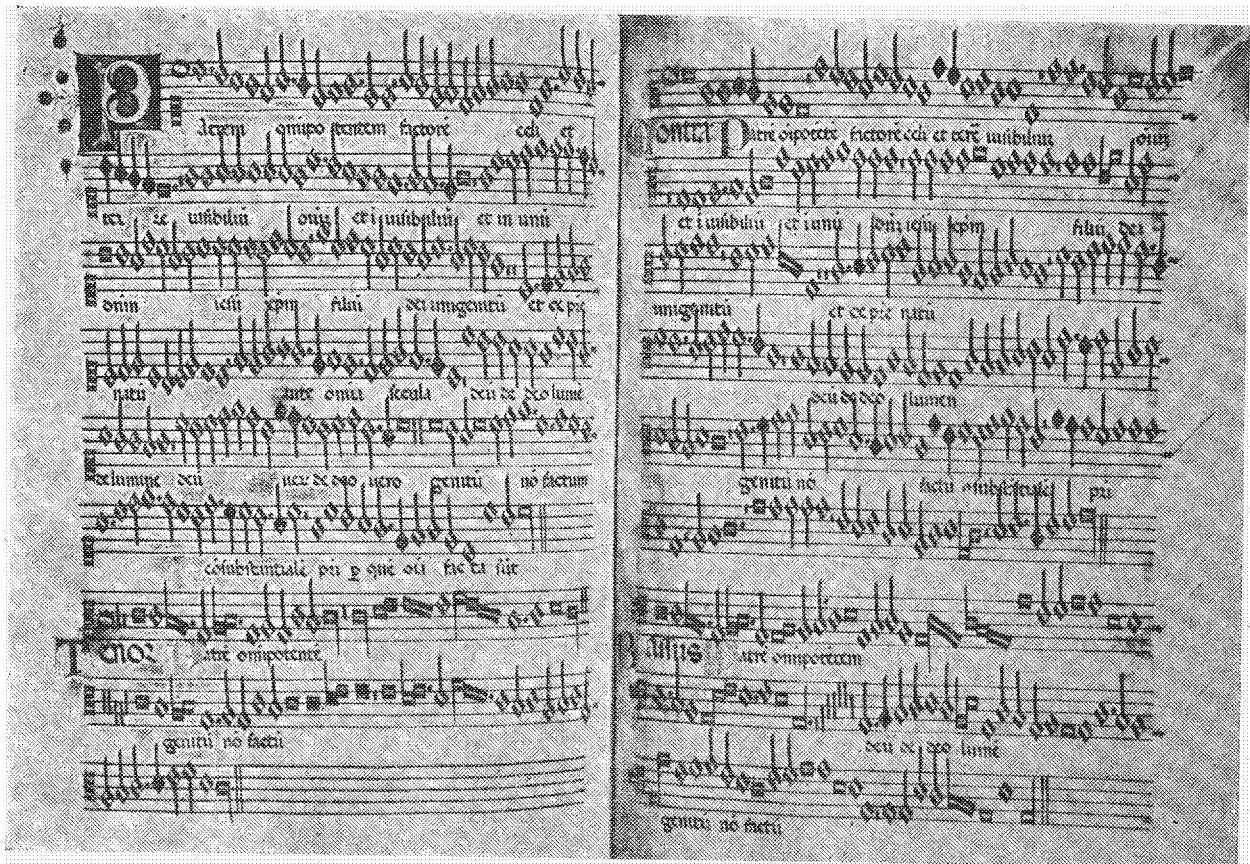 Patrem omnipotentem factorē celi et
ter re uisibiliū oīm et iuisibiliū et in unū
dn̄m iesū xp̄m filiū dei unigenitū et ex pr̄e
natū ante omīa secula deū de deo lumē
de lumine deū uerū de deo uero genitū nō factum
cōsubstantiale pri p̄ que oīa facta sūt
Tenor Patrē omīpotentē
genitū nō factū
Contra Patrē oīpotētē factorē celi et terrē uisibiliū oīm
et iuisibiliū et i unū dn̄m iesū xp̄m filiū dei
unigenitū et ex pr̄e natū
deū de deo lumen
genitū nō factū cōsubstātiale pri
Bassus Patrē omīpotētem
deū de deo lumē
genitū nō factū